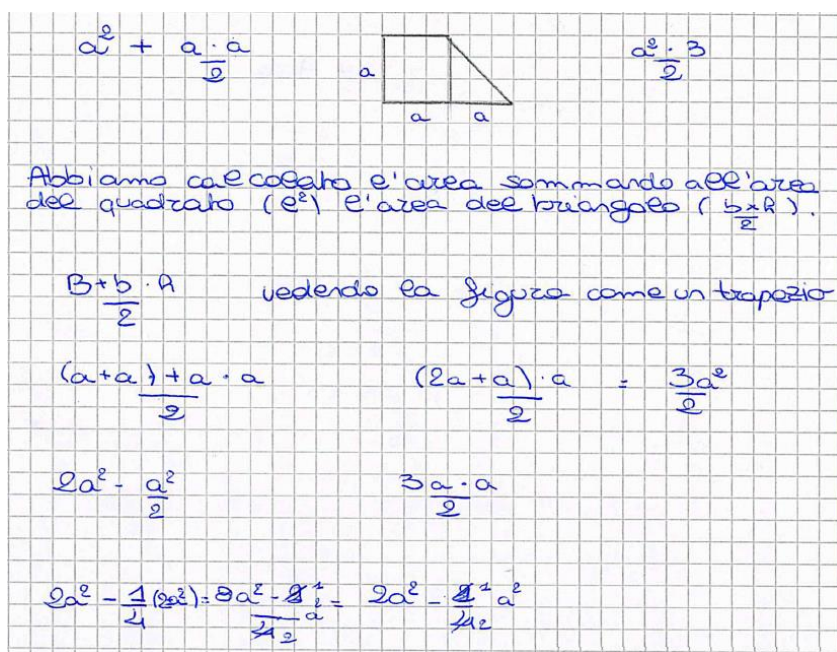 a² + a · a / 2
a² · 3 / 2
a
a a
Abbiamo calcolato l'area sommando all'area
del quadrato (l²) l'area del triangolo (b×h / 2).
B+b · h / 2 vedendo la figura come un trapezio
(a+a)+a · a / 2 (2a+a) · a / 2 = 3a² / 2
2a² - a² / 2 3a · a / 2
2a² - 1/4 (2a²) =
= 2a² - a²